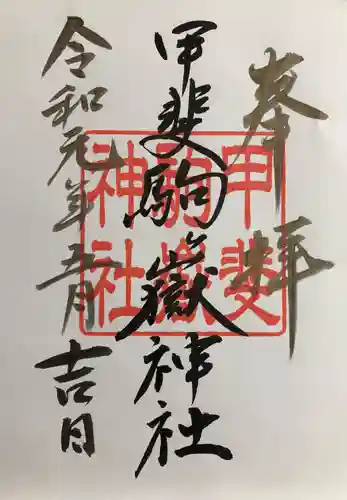 奉拝
甲斐駒嶽神社
令和元年五月吉日
甲斐
駒嶽
神社